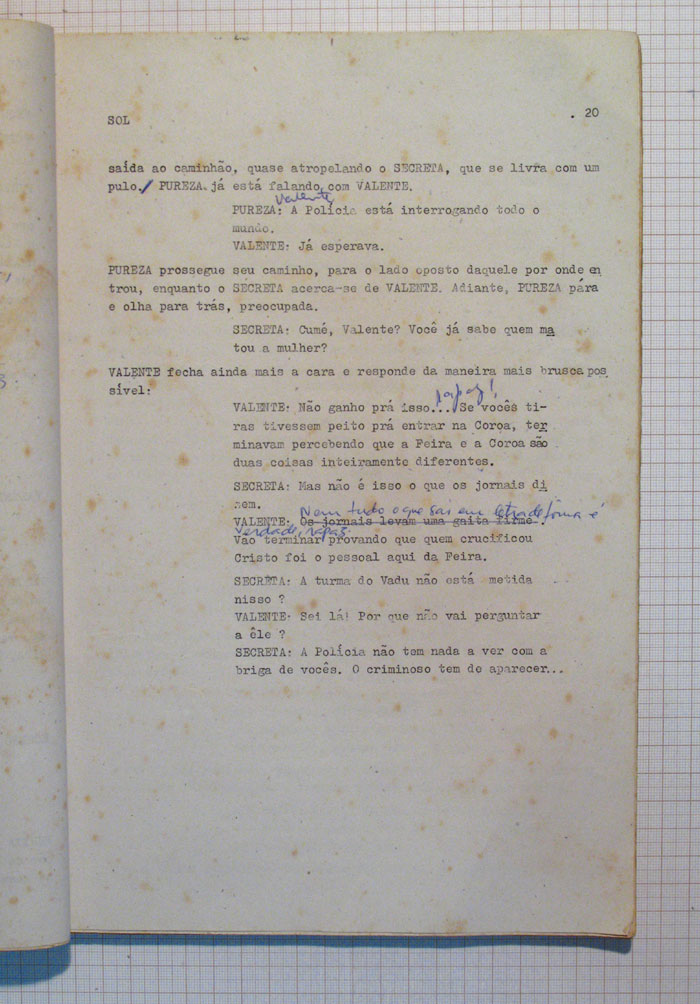 SOL
. 20
saída ao caminhão, quase atropelando o SECRETA, que se livra com um
pulo./ PUREZA já está falando com VALENTE.
Valente,
PUREZA: A Polícia está interrogando todo o
mundo.
VALENTE: Já esperava.
PUREZA prossegue seu caminho, para o lado oposto daquele por onde en
trou, enquanto o SECRETA acerca-se de VALENTE. Adiante, PUREZA pára
e olha para trás, preocupada.
SECRETA: Cumé, Valente? Você já sabe quem ma
tou a mulher?
VALENTE fecha ainda mais a cara e responde da maneira mais brusca pos
sível:
rapaz!
VALENTE: Não ganho prá isso... Se vocês ti-
ras tivessem peito prá entrar na Coroa, ter
minavam percebendo que a Feira e a Coroa são
duas coisas inteiramente diferentes.
SECRETA: Mas não é isso o que os jornais di
zem.
Nem tudo o que sai em letra de fôrma é
VALENTE: Os jornais levam uma gaita firme.
verdade, rapaz.
Vão terminar provando que quem crucificou
Cristo foi o pessoal aqui da Feira.
SECRETA: A turma do Vadu não está metida
nisso ?
VALENTE: Sei lá! Por que não vai perguntar
a êle ?
SECRETA: A Polícia não tem nada a ver com a
briga de vocês. O criminoso tem de aparecer...